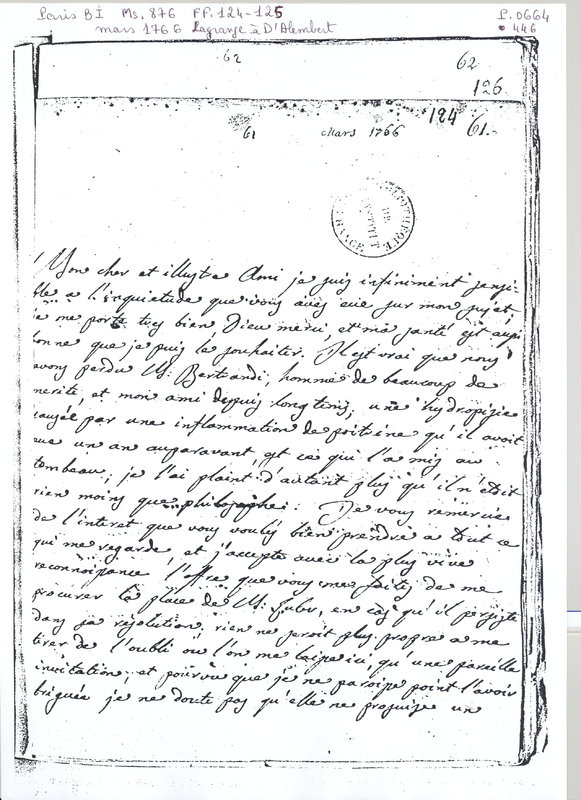 Paris BI Ms. 876 FF. 124-125
P. 0664
mars 1766 Lagrange à D'Alembert
446
62
62
126
124
61
Mars 1766
61.
Mon cher et illustre Ami je suis infiniment sensi-
ble a l'inquietude que vous avés eue sur mon sujet;
je me porte tres bien Dieu merci, et ma santé est aussi
bonne que je puis le souhaiter. Il est vrai que nous
avons perdu M. Bertrandi, homme de beaucoup de
merite, et mon ami depuis longtems; une hydropisie
causée par une inflammation de poitrine qu'il avoit
eue un an auparavant est ce qui l'a mis au
tombeau; je l'ai plaint d'autant plus qu'il n'étoit
rien moins que philosophe. Je vous remercie
de l'interet que vous voulés bien prendre a tout ce
qui me regarde, et j'accepte avec la plus vive
reconnoissance l'offre que vous me faites de me
procurer la place de M. Euler, en cas qu'il persiste
dans sa résolution, rien ne seroit plus propre a me
tirer de l'oubli où l'on me laisse ici, qu'une pareille
invitation; et pourvu que je ne paroisse point l'avoir
briguée je ne doute pas qu'elle ne produise un